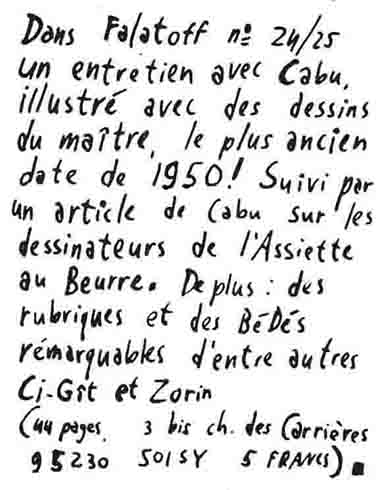 Dans Falatoff nº 24/25
un entretien avec Cabu,
illustré avec des dessins
du maître, le plus ancien
date de 1950! Suivi par
un article de Cabu sur les
dessinateurs de l'Assiette
au Beurre. De plus : des
rubriques et des BéDés
rémarquables d'entre autres
Ci-Gît et Zorin
(44 pages, 3 bis ch. des Carrières
95230 SOISY 5 FRANCS).